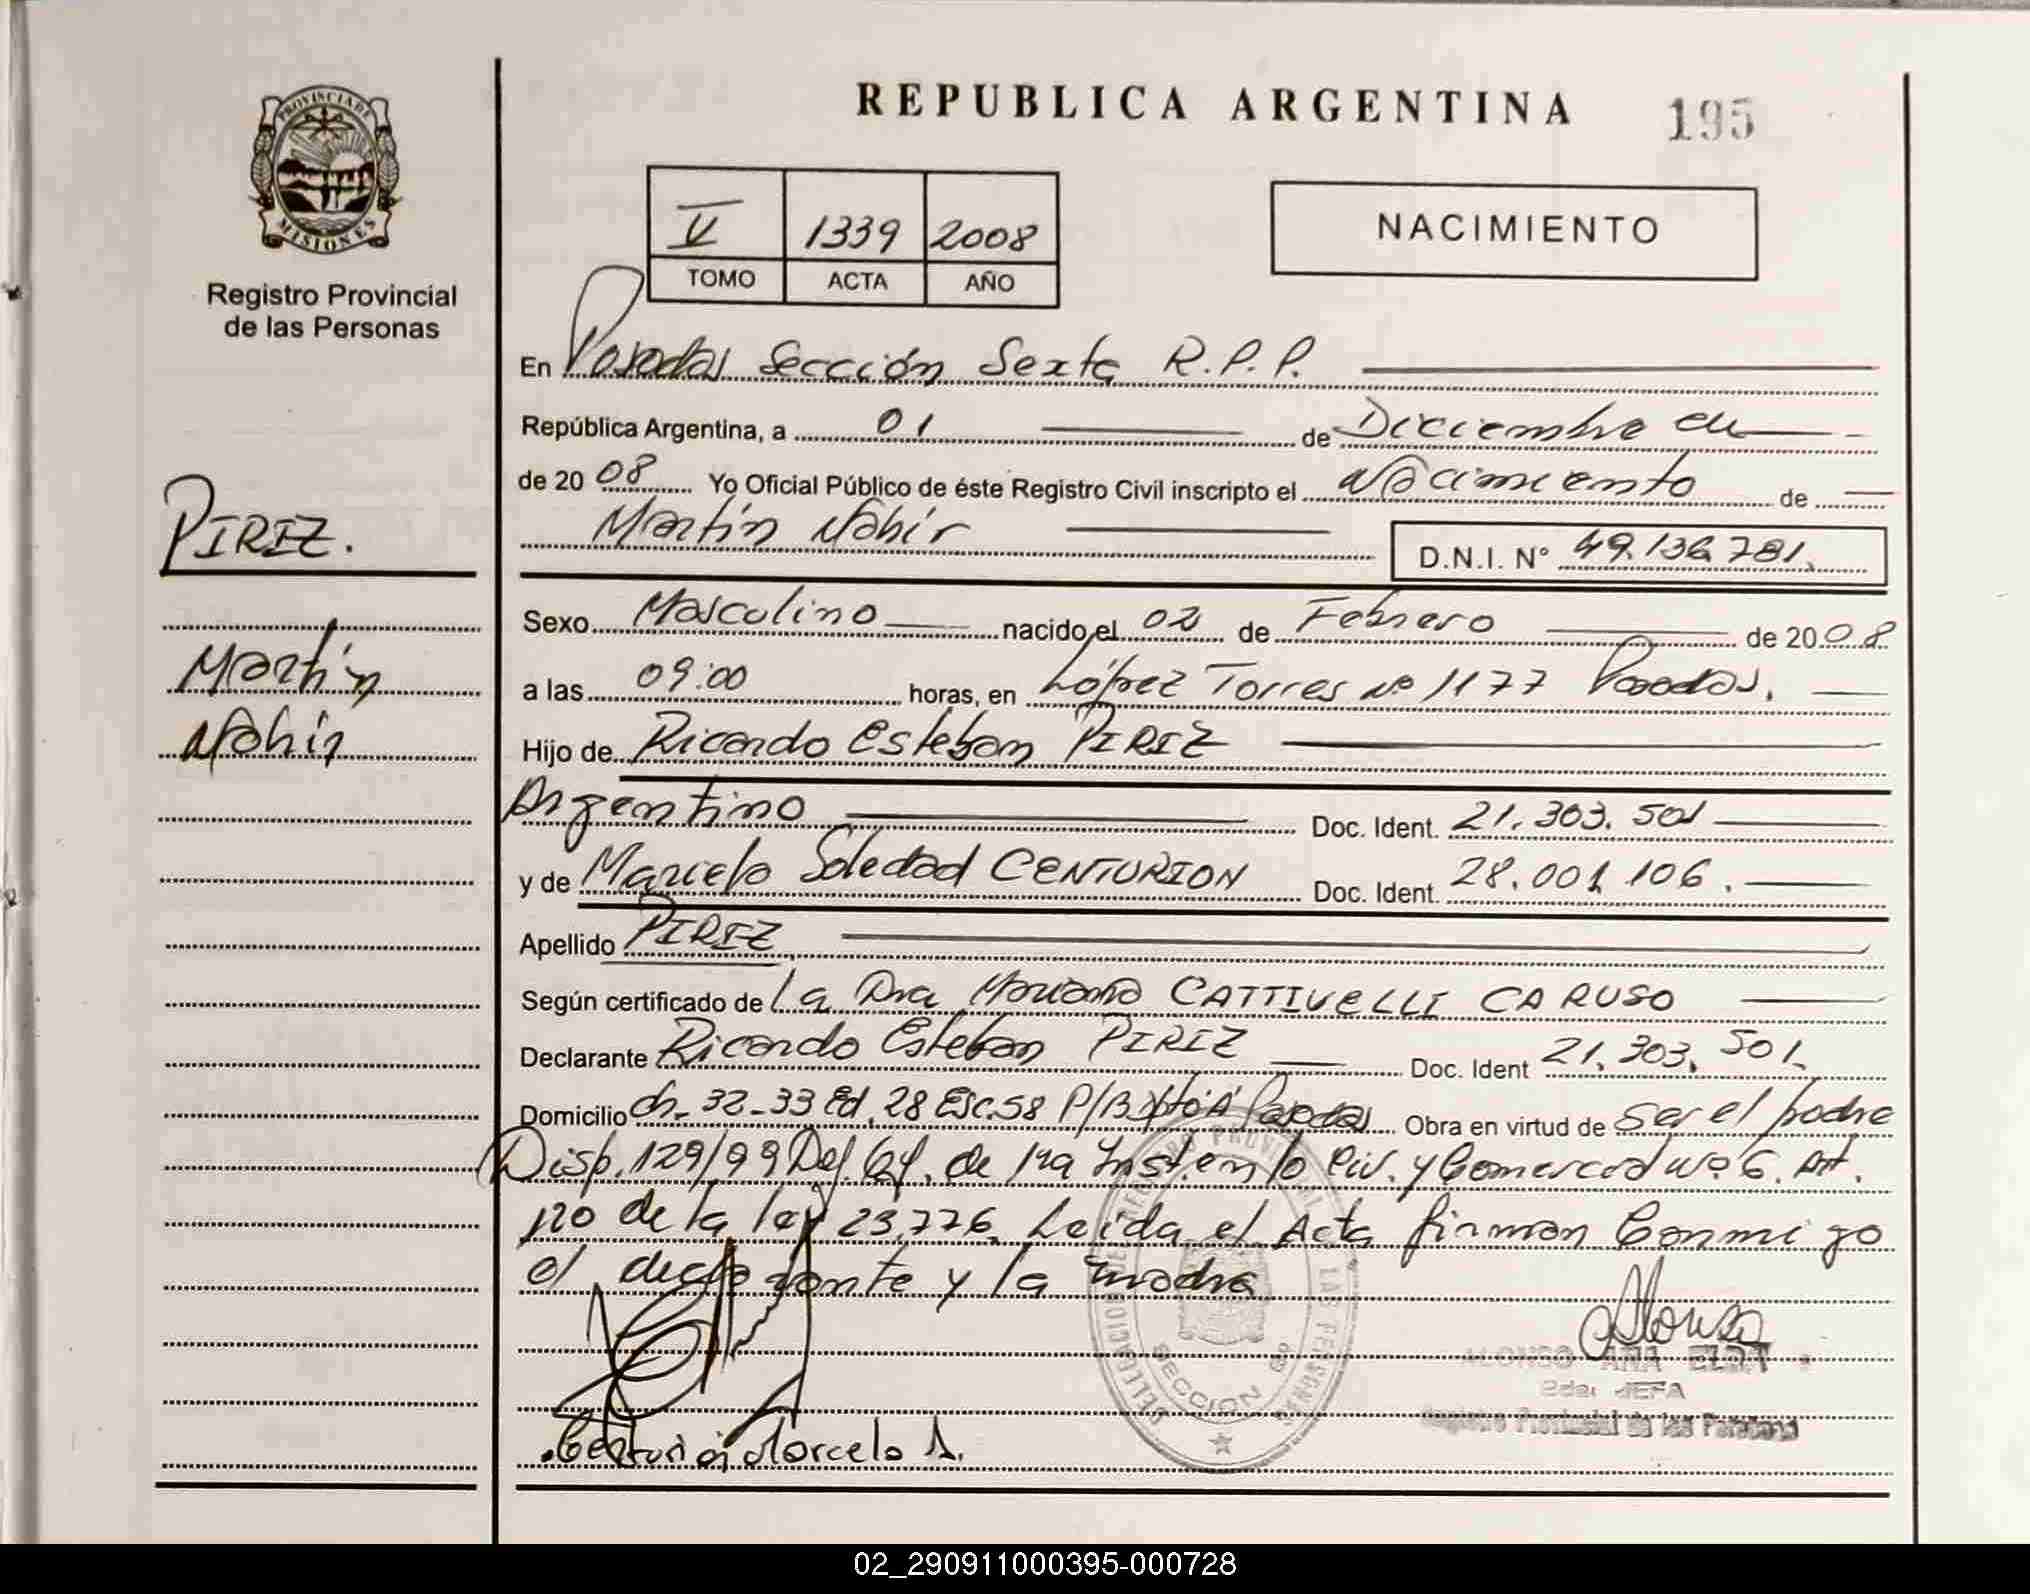 REPUBLICA ARGENTINA
195
PROVINCIA DE MISIONES
Registro Provincial
de las Personas
V 1339 2008
TOMO ACTA AÑO
NACIMIENTO
En Posadas Sección Sexta R.P.P.
República Argentina, a 01 de Diciembre de
de 2008 Yo Oficial Público de éste Registro Civil inscripto el Nacimiento de
Martín Nahir D.N.I. Nº 49.136.781.
PIREZ.
Martín
Nahir
Sexo Masculino nacido el 02 de Febrero de 2008
a las 09:00 horas, en López Torres Nº 1177 Posadas.
Hijo de Ricardo Esteban PIREZ
Argentino Doc. Ident. 21.303.501
y de Marcela Soledad CENTURION Doc. Ident. 28.001.106.
Apellido PIREZ
Según certificado de La Dra Mariana CATTIVELLI CARUSO
Declarante Ricardo Esteban PIREZ Doc. Ident 21.303.501.
Domicilio Ch. 32-33 Ed. 28 Esc. 58 P/B Dpto "A" Posadas Obra en virtud de ser el padre
Disp. 129/99 Def. Of. de 1ra Inst. en lo Civ. y Comercial Nº 6. Art.
120 de la ley 23.776. Leida el Acta firman Conmigo
el declarante y la madre
Alonso
ALONSO ANA ELDA
2da. JEFA
Registro Provincial de las Personas
DELEGACION DE REGISTRO PROVINCIAL DE LAS PERSONAS
SECCION 6º
Centurión Marcela S.
02_290911000395-000728